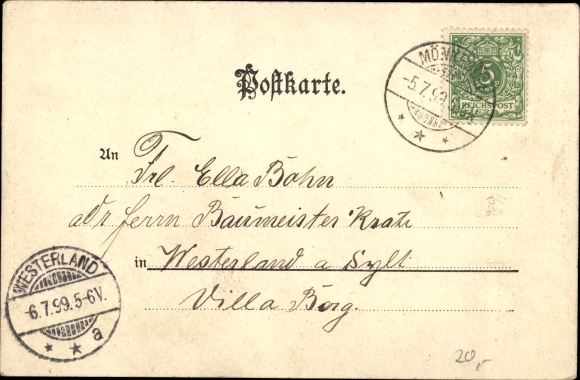 Postkarte.
MÖNKE
-5.7.99.
5
REICHSPOST
An
Frl. Ella Bohn
adr Herrn Baumeister Krate
in Westerland a Sylt
Villa Borg.
WESTERLAND
-6.7.99.5-6V.
a
20,-